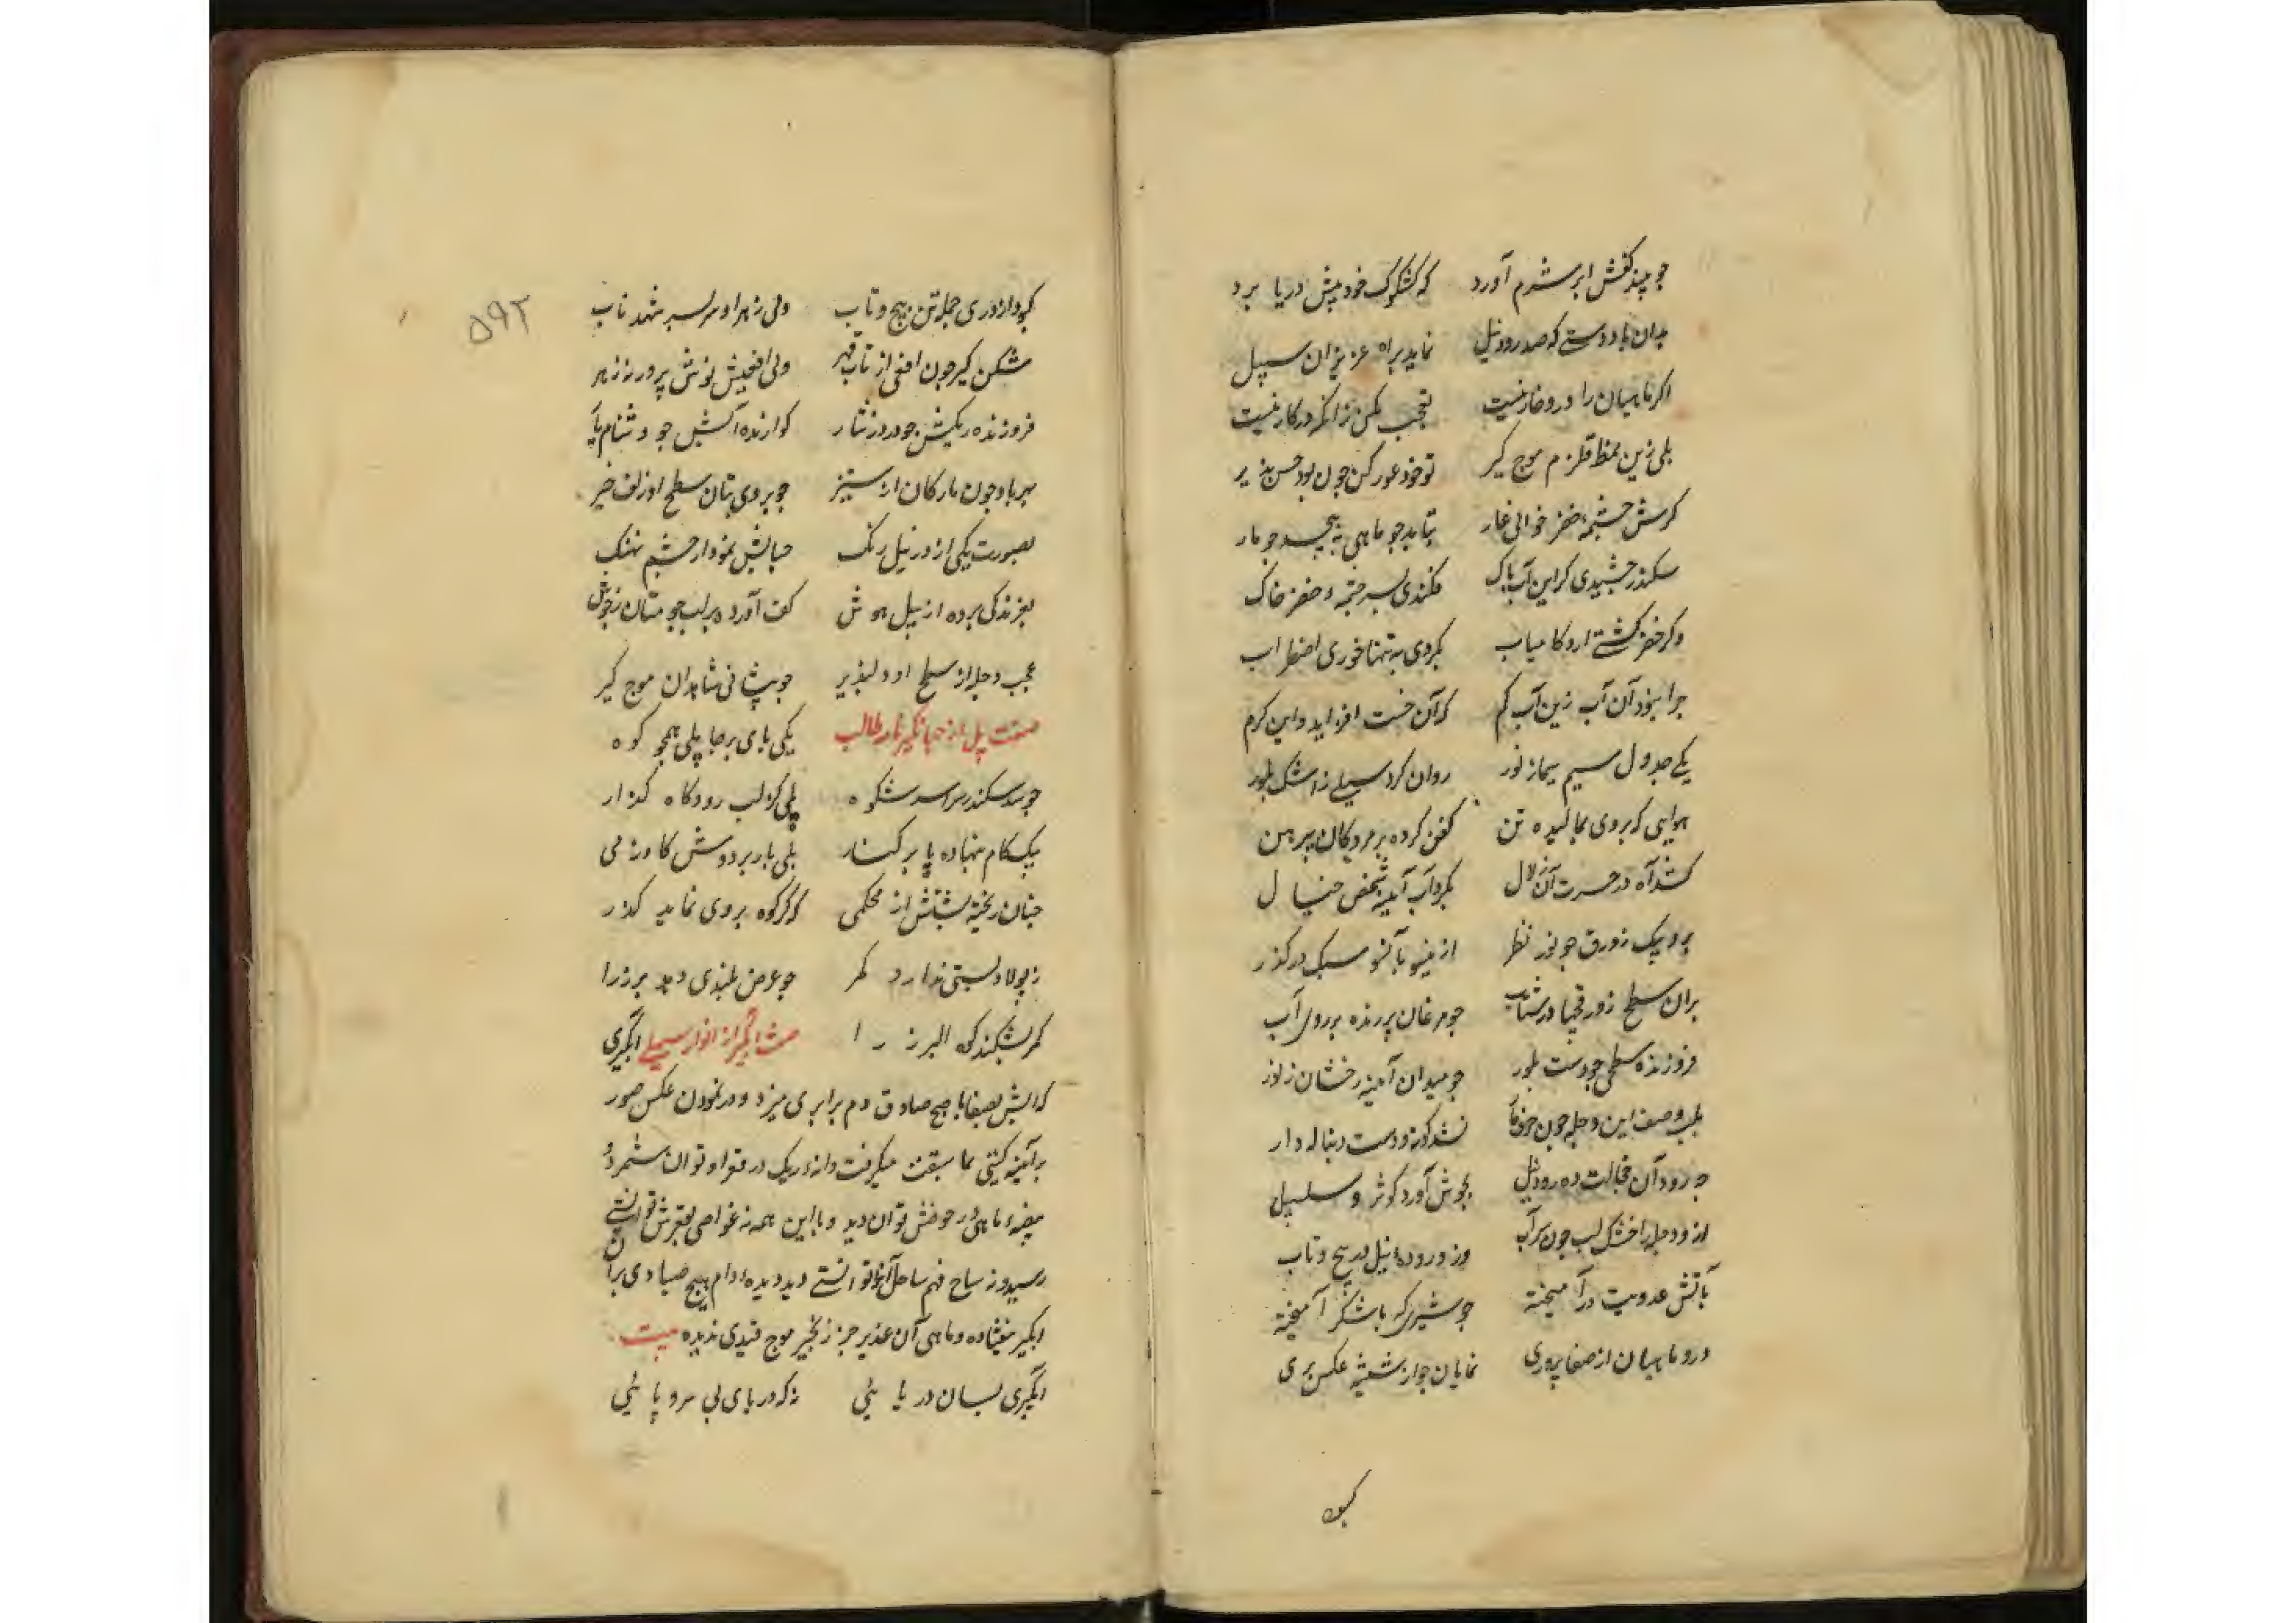 چو بیند کفش ابر شرم آورد که کشکول خود پیش دریا برد
بدان باد دستی که صد رود نیل نماید براه عزیزان سبیل
اکر ماهیان را درو خار نیست تعجب مکن زانکه در کار نیست
بلی زین نمط قلزم موج کیر تو خود غور کن چون بود حس پذیر
کرش چشمهٔ خضر خوانی غار بتابد چو ماهی به پیچد چو مار
سکندر چشیدی کر این آب پاک فکندی بسر چشمهٔ خضر خاک
وکر خضر کشتی ازو کامیاب نکردی به تنها خوری اضطراب
چرا نبود آن آب زین آب کم که آن خست افزاید و این کرم
یکی جدول سیم سیماز نور روان کرد سیلی ز اشک بلور
هوایی که بروی بمالیده تن کفن کرده بر مردکان پیرهن
کشد آه در حسرت آن زلال بکرد آب آیینه شخص خیال
برو پیک زورق چو نور نظر ازینسو بآنسو سبک در کذر
بران سطح زورقچها در شتاب چو مرغان پرنده بر روی آب
فروزنده سطحی چو دست بلور چو میدان آینه رخشان ز نور
بلب وصف این دجله چون نشد کوته و دست دنباله دار
چه رود آن خجالت ده رود نیل بجوش آورد کوثر و سلسبیل
ازو دجله را خشک لب چون سراب وزو رودهٔ نیل در پیچ و تاب
بآتش عذوبت در آمیخته چو شیری که با شکر آمیخته
درو ماهیان از صفا پروری نمایان چو از شیشه عکس پری
کبو
۵۹۲
کبود اژدری جمله تن پیچ و تاب ولی زهر او سر بسر شهد ناب
شکن کیر چون افعی از تاب قهر ولی افعیش نوش پرورد نه زهر
فروزنده ریکش چو در در نثار کوارنده آبش چو دشنام یار
بصورت یکی اژدر نیل رنک حبابش نمودار چشم نهنک
بغرندکی برده از پیل هوش کف آورده بر لب چو مستان ز جوش
عجب دجله از سطح او دلپذیر چو پیشانی شاهدان موج کیر
صفت پل از جهانکیرنامه طالب یکی پای برجا پلی همچو کوه
چو سد سکندر سراسر شکوه پلی کز لب رود کاه کذار
بیک کام نهاده پا بر کنار بلی بار بر دوش کاو زمی
چنان ریخته پشتش از محکمی که کر کوه بر وی نماید کذر
ز پولاد بستی ندارد کمر چو عرض بلندی دهد برز را
کمر بشکند کوه البرز را صفت آبکیر از انوار سهیلی آبکیری
که آبش بصفا با صبح صادق دم برابری میزد و در نمودن عکس صور
بر آینه کیتی نما سبقت میکرفت دانهٔ ریک در قعر او توان شمرد و
بیضهٔ ماهی در حوضش توان دید و با این همه نه غواص بقعرش توانستی
رسید و نه سیاح فهم ساحل آنرا توانستی دید دیدهٔ دام هیچ صیادی بر آن
آبکیر نیفتاده و ماهی آن غدیر جز زنجیر موج قیدی ندیده بیت
آبکیری بسان دریایی نه که دریای بی سر و پایی